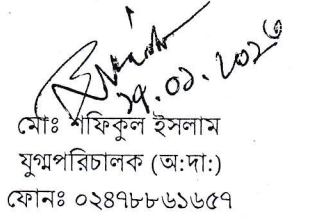 ২৭.০১.২০২৬
মোঃ শফিকুল ইসলাম
যুগ্মপরিচালক (অ:দা:)
ফোনঃ ০২৪৭৮৮৬১৬৫৭